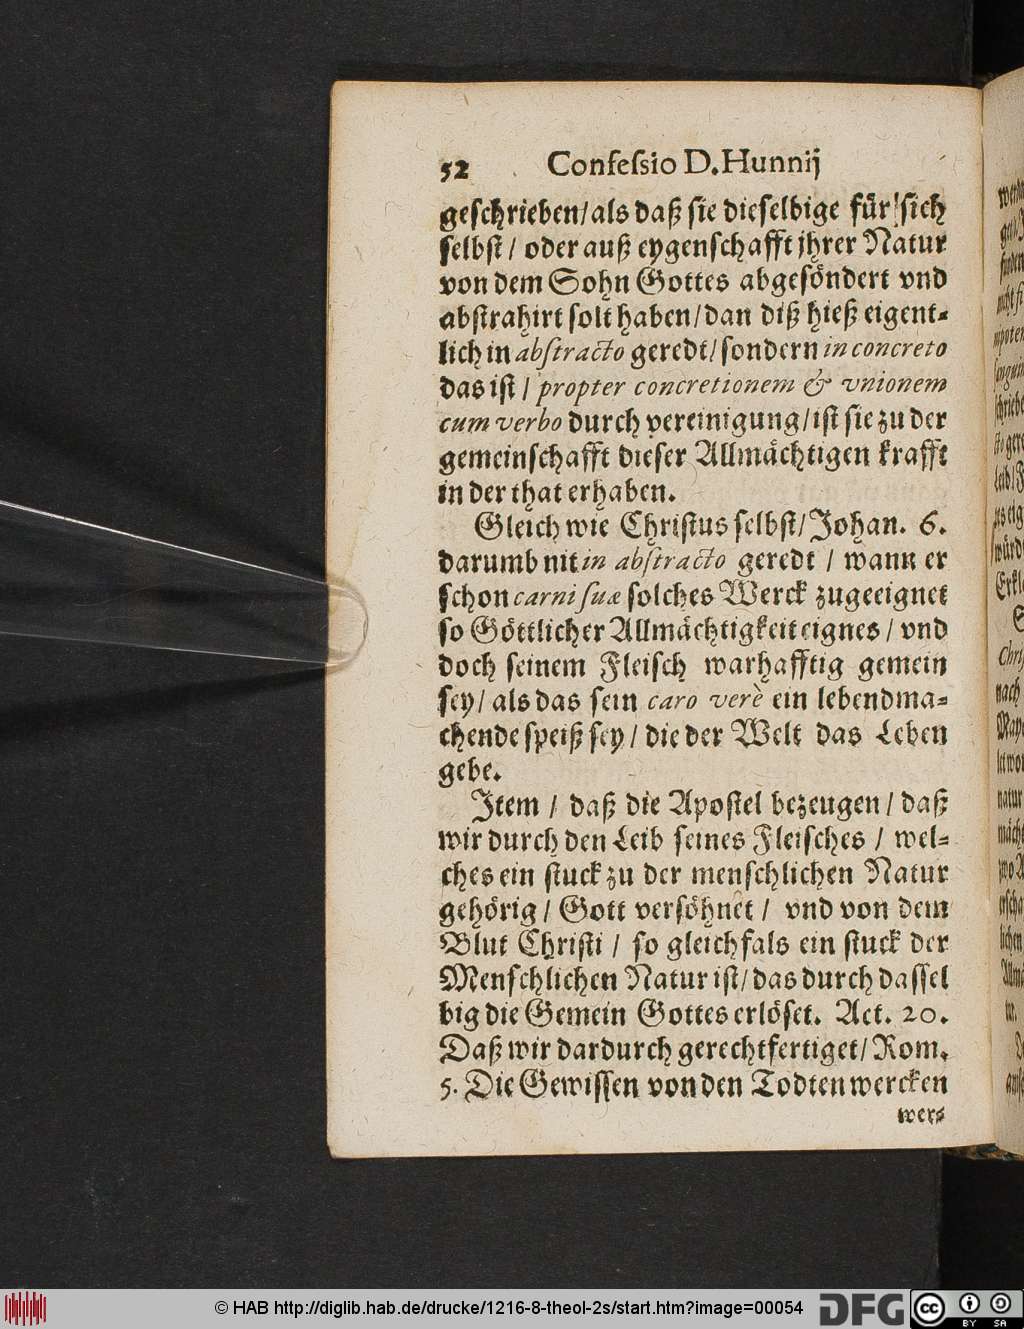 52 Confeſsio D. Hunnij
geſchrieben/ als daß ſie dieſelbige fuͤr ſich
ſelbſt / oder auß eygenſchafft jhrer Natur
von dem Sohn Gottes abgeſoͤndert vnd
abſtrahirt ſolt haben/ dan diß hieß eigent-
lich in abſtracto geredt/ ſondern in concreto
das iſt / propter concretionem & vnionem
cum verbo durch vereinigung/ iſt ſie zu der
gemeinſchafft dieſer Allmaͤchtigen krafft
in der that erhaben.
Gleich wie Chriſtus ſelbſt/ Johan. 6.
darumb nit in abſtracto geredt / wann er
ſchon carni ſuæ ſolches Werck zugeeignet
ſo Goͤttlicher Allmaͤchtigkeit eignes / vnd
doch ſeinem Fleiſch warhafftig gemein
ſey/ als das ſein caro verè ein lebendma-
chende ſpeiß ſey / die der Welt das Leben
gebe.
Item / daß die Apoſtel bezeugen / daß
wir durch den Leib ſeines Fleiſches / wel-
ches ein ſtuck zu der menſchlichen Natur
gehoͤrig / Gott verſoͤhnet / vnd von dem
Blut Chriſti / ſo gleichfals ein ſtuck der
Menſchlichen Natur iſt/ das durch daſſel
big die Gemein Gottes erloͤſet. Act. 20.
Daß wir dardurch gerechtfertiget/ Rom.
5. Die Gewiſſen von den Todten wercken
wer-
© HAB http://diglib.hab.de/drucke/1216-8-theol-2s/start.htm?image=00054
DFG
cc BY SA